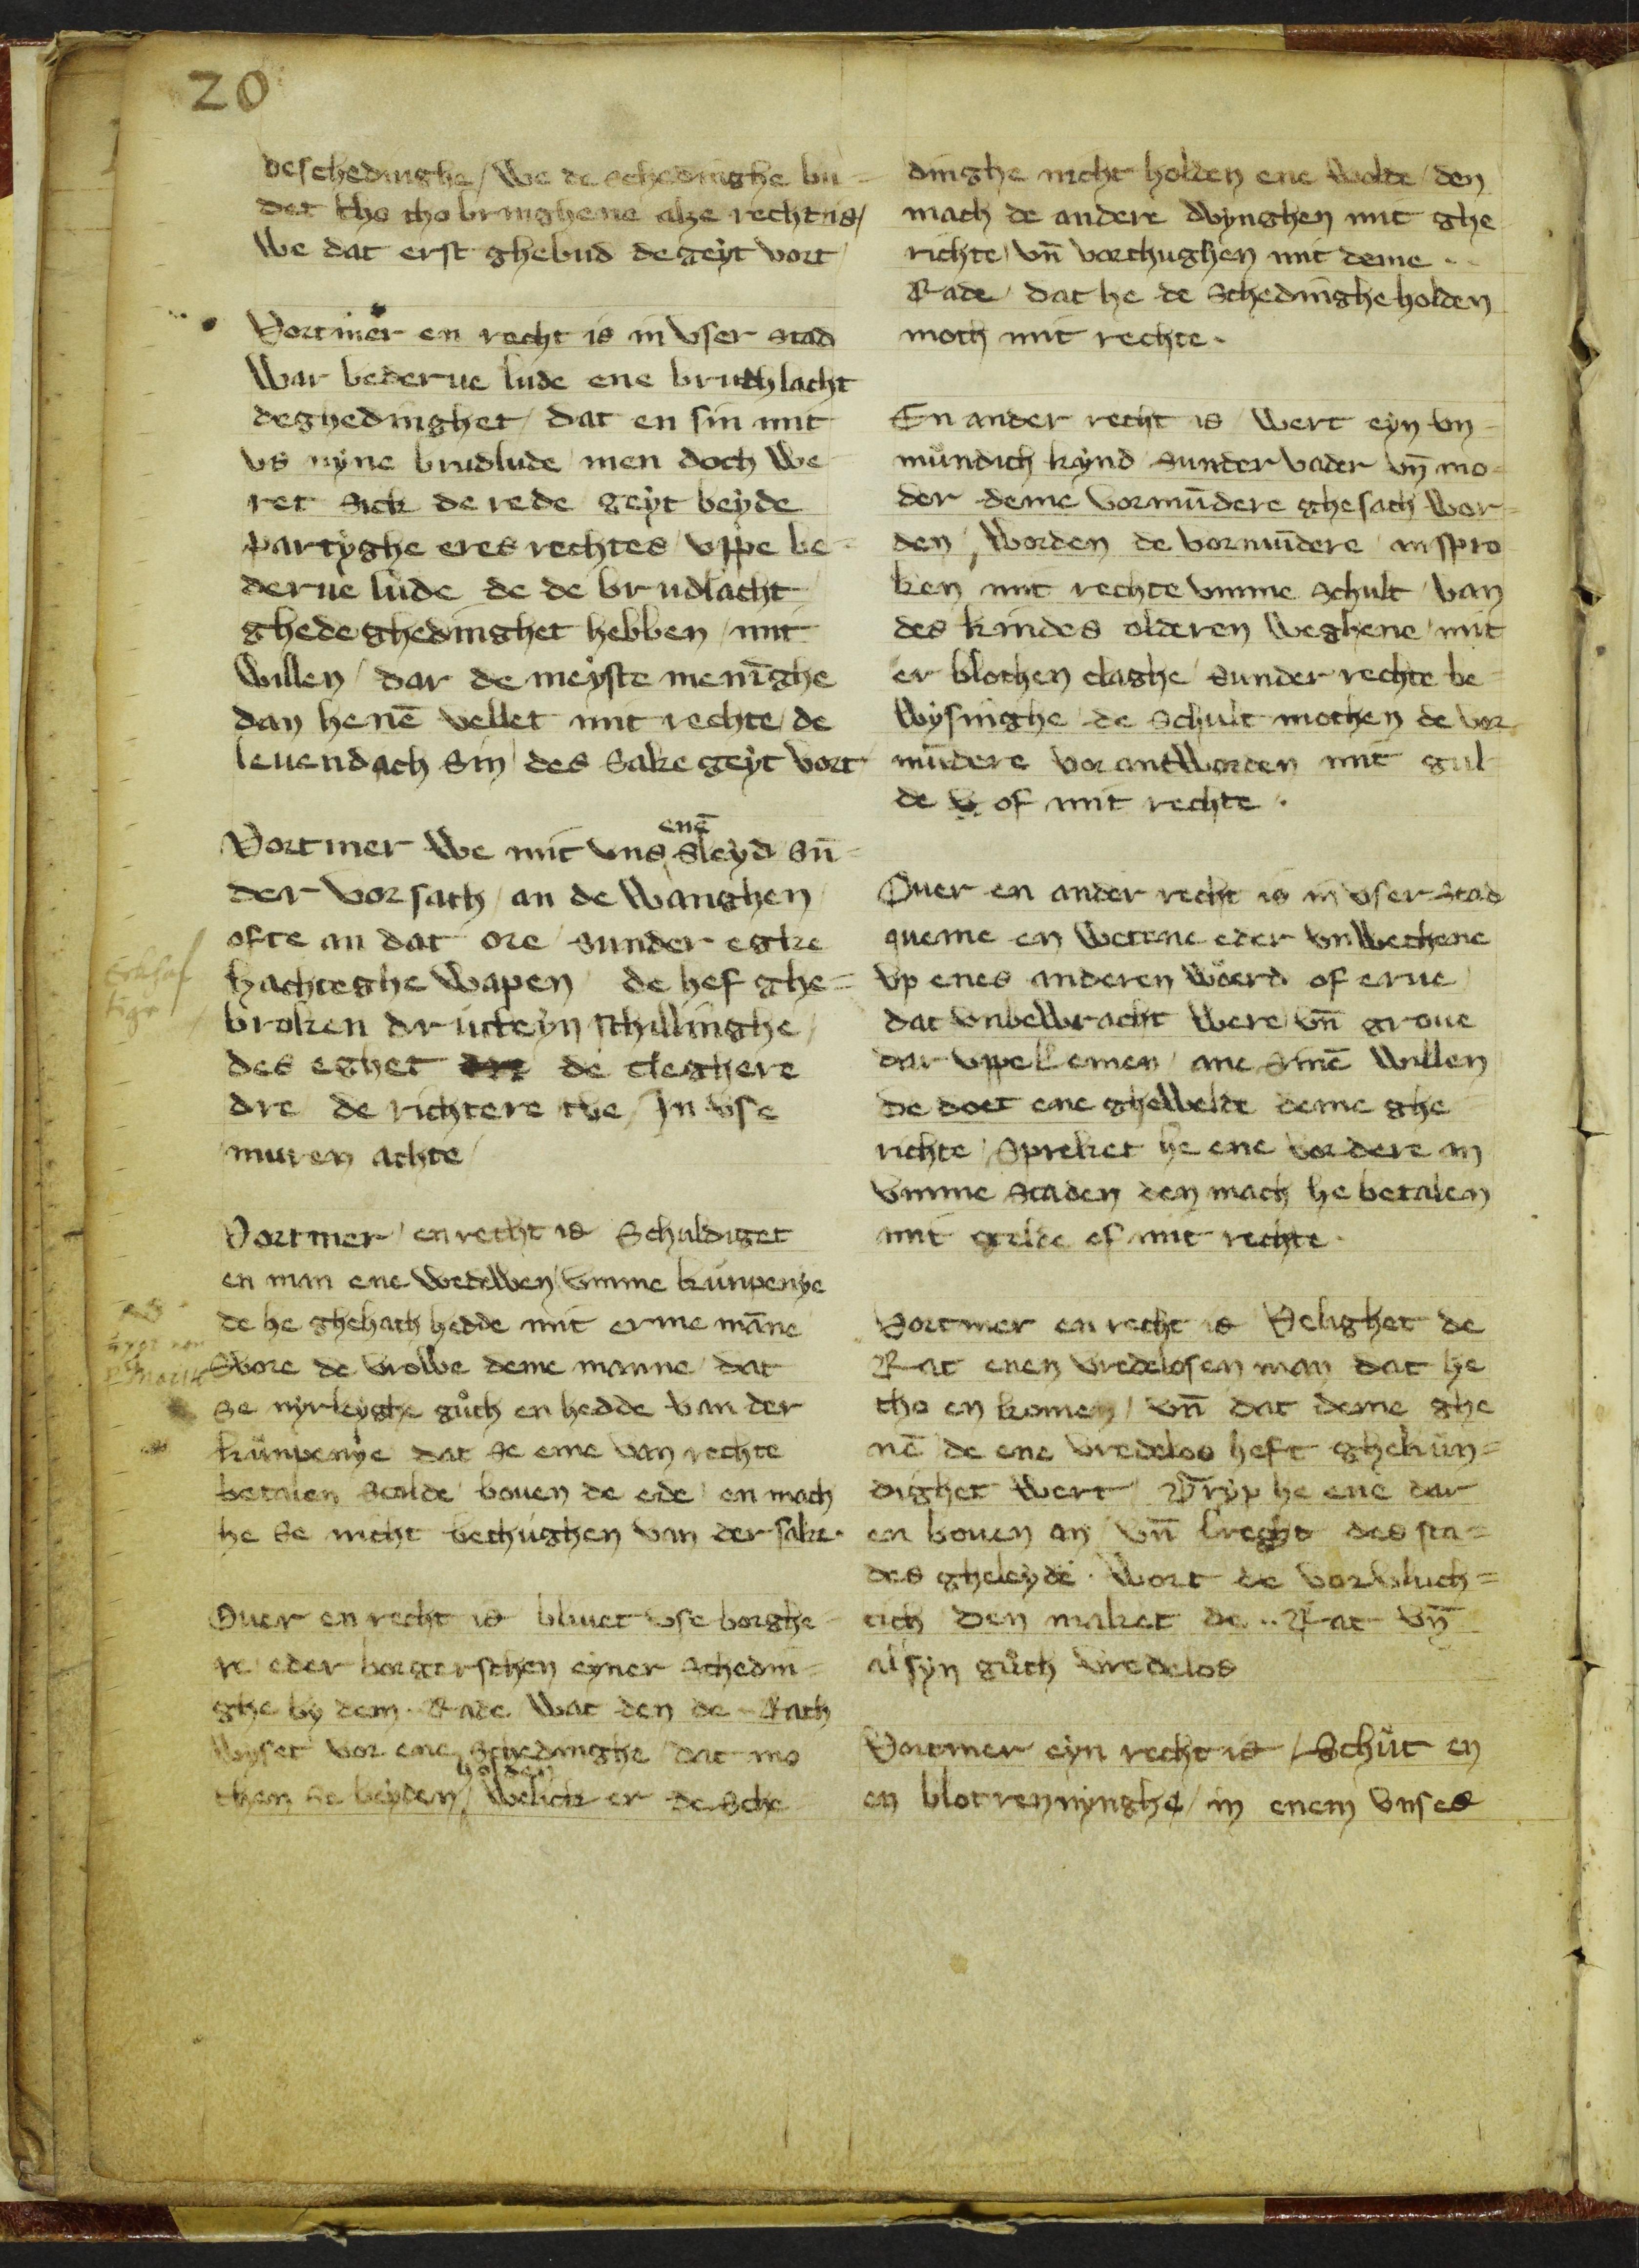 20
beschedinghe / We de schedinghe bu=
det tho tho bringhene alze recht is /
We dat erst ghebud de geyt vort /
Vortmer en recht is in vser stad
War bederue lude ene brutlacht
deghedinghet / dat en sin mit
vs nyne brudlude / men doch We
ret sick de rede geyt beyde
partyghe eres rechtes / vppe be=
derue lude de de brudlacht
ghedeghedinghet hebben / mit
Willen / dar de meyste meninghe
dan henē vellet mit rechte / de
leuendach sin / des sake geyt vort
enē
Vortmer We mit vns sleyd sū=
der vorsath / an de Wanghen
ofte an dat ore / sunder egke
hachteghe Wapen / de hef ghe=
broken drutteyn schillinghe /
des eghet de cleghere
dre / de richtere tve / In vse
muren achte /
Vortmer / en recht is Schuldiget
en man ene wedeWen / vmme kůnpenye
de he ghehath hedde mit erme māne
Swore de vroWe deme manne / dat
se nyrleyghe gůth en hedde van der
kůnpenye dat se eme van rechte
betalen scolde / bouen de ede / en mach
he se nicht bethughen van der sake.
Ouer en recht is / bliuet vse borghe
re / eder borgerschen eyner schedin=
ghe by dem Rade Wat den de Rath
Wyset vor ene schedinghe / dat mo
holden
then se beyden / Welick er de sche
Eckhaf
tige
dinghe nicht holden ene Wolde / den
mach de andere dWynghen mit ghe
richte / vn̄ vorthughen mit deme ..
Rade / dat he de schedinghe holden
moth mit rechte.
En ander recht is / Wert eyn vn=
můndich kynd / sunder vader vn̄ mo=
der deme vormūdere ghesath Wor=
den / Worden de vormūdere anspro
ken mit rechte vmme schult / van
des kindes olderen Weghene / mit
er blothen claghe / sunder rechte be=
Wysinghe / de schult mothen de vor
mūdere vorantWorden mit gul
de of mit rechte.
Ouer en ander recht is in vser stad
queme en Wetene eder vnWethene
vp enes anderen Woerd of erue /
dat vnbeWracht Were / vn̄ groue
dar vppe lemen / ane sinē Willen
de doet ene gheWelde deme ghe
richte / spreket he ene vordere an
vmme scaden den mach he betalen
mit gelde of mit rechte.
Vortmer en recht is Velighet de
Rat enen vredelosen man dat he
tho en komen / vn̄ dat deme ghe
nē de ene vredelos heft ghekůn=
dighet Wert / Gryp he ene dar
en bouen an / vn̄ breght des sta=
des gheleyde. Wort de vorvluch=
tich den maket de .. Rat vn̄
al syn gůth vredelos
Vortmer eyn recht is / Schůt en
en blotrennynghe / in enem vnses